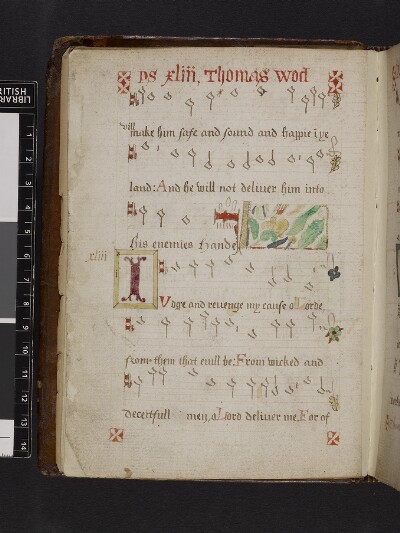 ps xliii, Thomas Wod
will
make him safe and sound and happie i ye
land: And he will not deliuer him into
his enemies hande
xliii
I
Vdge and reuenge my cause o Lorde,
from them that euill be: From wicked and
deceitfull men, o Lord deliuer me. For of
1
2
3
4
5
6
7
8
9
10
11
12
13
14